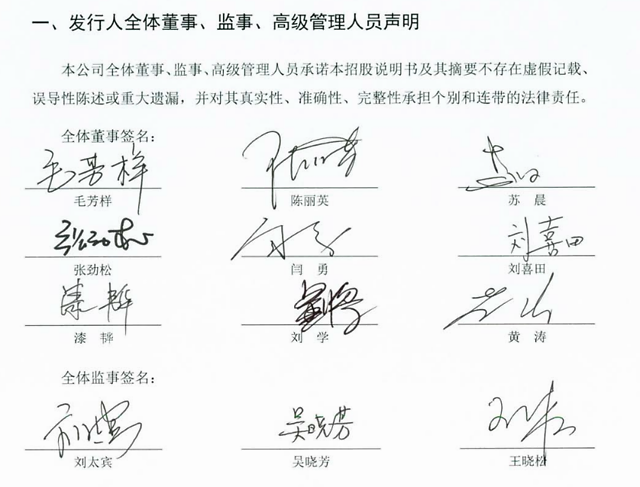 一、发行人全体董事、监事、高级管理人员声明
本公司全体董事、监事、高级管理人员承诺本招股说明书及其摘要不存在虚假记载、
误导性陈述或重大遗漏，并对其真实性、准确性、完整性承担个别和连带的法律责任。
全体董事签名：
毛芳样
毛芳样 陈丽英 苏 晨
刘喜田
张劲松 闫 勇 刘喜田
漆 韡
漆 韡 刘 学 黄 涛
全体监事签名：
吴晓芳
刘太宾 吴晓芳 王晓松